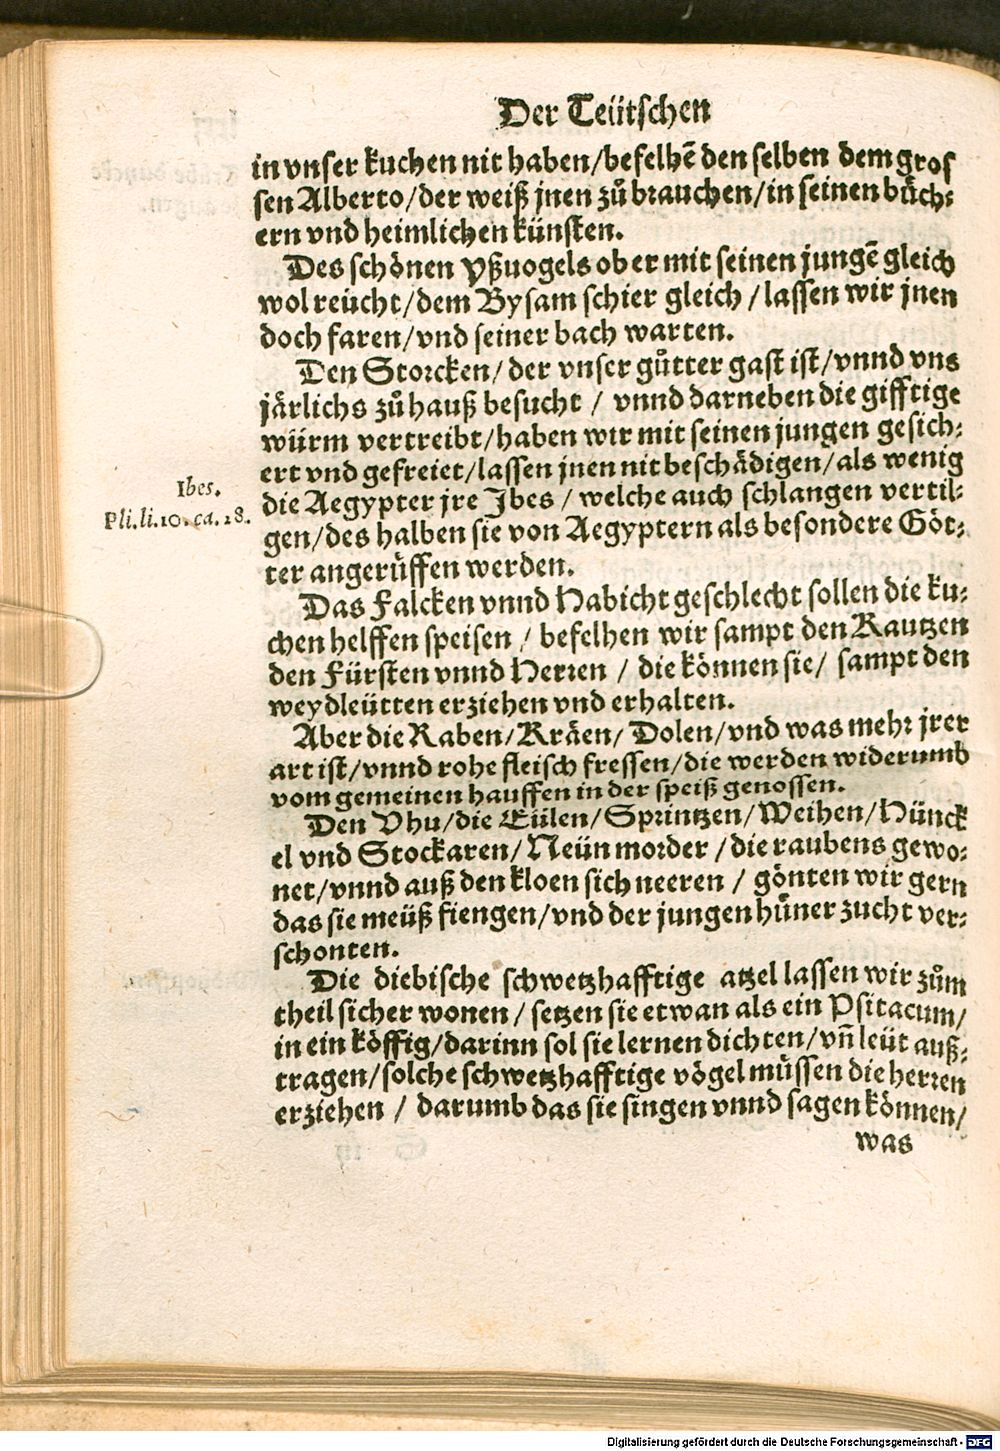 Der Teütschen
in vnser kuchen nit haben/befelhẽ den selben dem gros
sen Alberto/der weiß jnen zů brauchen/in seinen bůch⸗
ern vnd heimlichen künsten.
Des schönen Yßuogels ob er mit seinen jungẽ gleich
wol reücht/dem Bysam schier gleich/lassen wir jnen
doch faren/vnd seiner bach warten.
Den Storcken/der vnser gůtter gast ist/vnnd vns
järlichs zů hauß besucht/vnnd darneben die gifftige
würm vertreibt/haben wir mit seinen jungen gesich⸗
ert vnd gefreiet/lassen jnen nit beschädigen/als wenig
Ibes.
die Aegypter jre Jbes/welche auch schlangen vertil⸗
Pli.li.10.ca.28.
gen/des halben sie von Aegyptern als besondere Göt⸗
ter angerůffen werden.
Das Falcken vnnd Habicht geschlecht sollen die ku⸗
chen helffen speisen/befelhen wir sampt den Rautzen
den Fürsten vnnd Herren/die können sie/sampt den
weydleütten erziehen vnd erhalten.
Aber die Raben/Kräen/Dolen/vnd was mehr jrer
art ist/vnnd rohe fleisch fressen/die werden widerumb
vom gemeinen hauffen in der speiß genossen.
Den Vhu/die Eülen/Sprintzen/Weihen/Hünck
el vnd Stockaren/Neün morder/die raubens gewo⸗
net/vnnd auß den kloen sich neeren/gönten wir gern
das sie meüß fiengen/vnd der jungen hůner zucht ver⸗
schonten.
Die diebische schwetzhafftige atzel lassen wir zům
theil sicher wonen/setzen sie etwan als ein Psitacum/
in ein köffig/darinn sol sie lernen dichten/vñ leüt auß⸗
tragen/solche schwetzhafftige vögel můssen die herren
erziehen/darumb das sie singen vnnd sagen können/
was
Digitalisierung gefördert durch die Deutsche Forschungsgemeinschaft - DFG